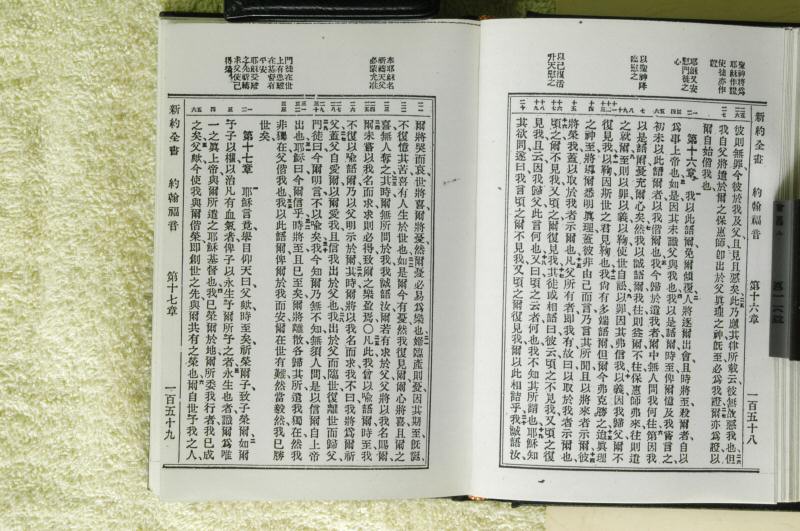 聖神將爲
耶穌作證
使徒亦作
證
耶穌又安
慰門徒之
心
以聖神降
臨慰之
以已復活
升天慰之
新約全書 約翰福音 第十六章 一百五十八
彼則無罪今彼於我及父且見且惡矣此乃應其律所載云彼無故惡我也但
我自父將遣於爾之保惠師卽出於父眞理之神旣至必爲我證爾亦爲證以
爾自始偕我也
第十六章 我以此語爾免爾傾復人將逐爾出會且時將至殺爾者自以
爲事上帝也如是因其未識父與我也我以是語爾時至俾爾憶及我嘗言之
初未以此語爾者以我偕爾也我今歸於遣我者爾中無人問我何往第因我
以是語爾憂充爾心矣然我以誠語爾我往則益爾不往保惠師弗來往則遣
之就爾至則以罪以義以鞫使世自訟以罪因其弗信我以義因我歸父爾不
復見我以鞫因斯世之君見鞫也我尚有多端語爾但爾今弗克勝之迨眞理
之神至將導爾悉明眞理蓋彼非由己而言乃言其所聞且以將來者示爾彼
將榮我蓋以取於我者示爾也凡父所有者卽我有故曰以取於我者示爾也
頃之爾不見我又頃之爾復見我其徒或相語曰彼云頃之不見我又頃之復
見我且云因我歸父此言何也又曰頃之云者何也我不知其所謂也耶穌知
其欲問遂曰我言頃之爾不見我又頃之爾復見我爾以此相詰乎我誠語汝
奉耶穌名
祈禱天父
必蒙允准
門徒在世
上有患難
在基督有
平安
耶穌受難
之先祈禱
求父使己
得榮
爾將哭而哀世將喜爾將憂然爾憂必易爲樂也婦臨產則憂因其期至旣誕
不復憶其苦喜有人生於世也如是爾今有憂然我復見爾爾心將喜且爾之
喜無人奪之其時爾無所問於我我誠語汝爾若有求於父父將以我名賜爾
爾未嘗以我名而求求則必得致爾之樂盈焉○凡此我曾以喩語爾時至我
不復以喩語爾乃以父明示於爾其時爾將以我名而求我不曰我將爲爾祈
父蓋父自愛爾以爾愛我且信我出於父也我出於父而臨世復離世而歸父
門徒曰今爾明言不以喩矣我今知爾乃無不知無須人問是以信爾自上帝
出也耶穌曰今爾信乎時將至且已至矣爾將離散各歸其所遺我獨在然我
非獨在父偕我也我以此語爾俾爾於我而安爾在世有難然當毅然我已勝
世矣
第十七章 耶穌言竟舉目仰天曰父歟時至矣祈榮爾子致子榮爾如爾
予子以權以治凡有血氣者俾子以永生予爾所予之者永生也者識爾爲唯
一之眞上帝與爾所遣之耶穌基督也我已榮爾於地爾所委我行者我已成
之矣父歟今使我與爾偕榮卽創世之先與爾共有之榮也爾自世予我之人
新約全書 約翰福音 第十七章 一百五十九